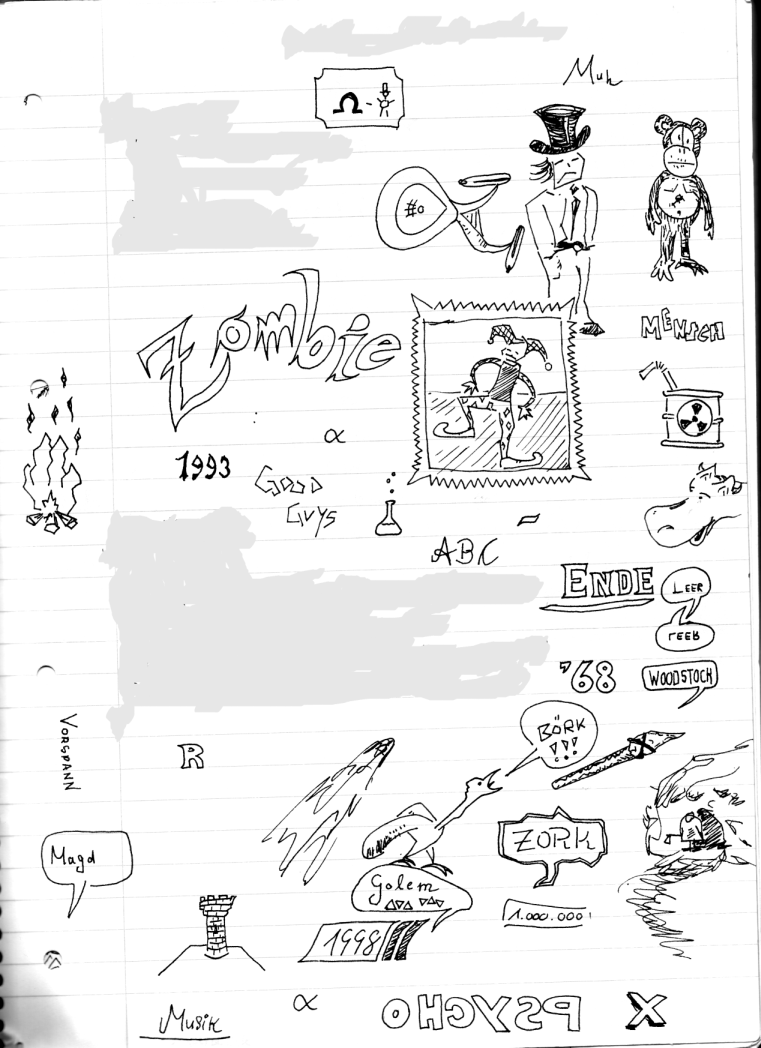 Muh
Ω-
#0
Zombie
MENSCH
∝
1993
GOOD
GUYS
ABC
ENDE
LEER
LEER
'68
WOODSTOCK
VORSPANN
R
BÖRK
!!!
ZORK
Magd
Golem
1.000.000!
1998
Musik
∝
PSYCHO
X